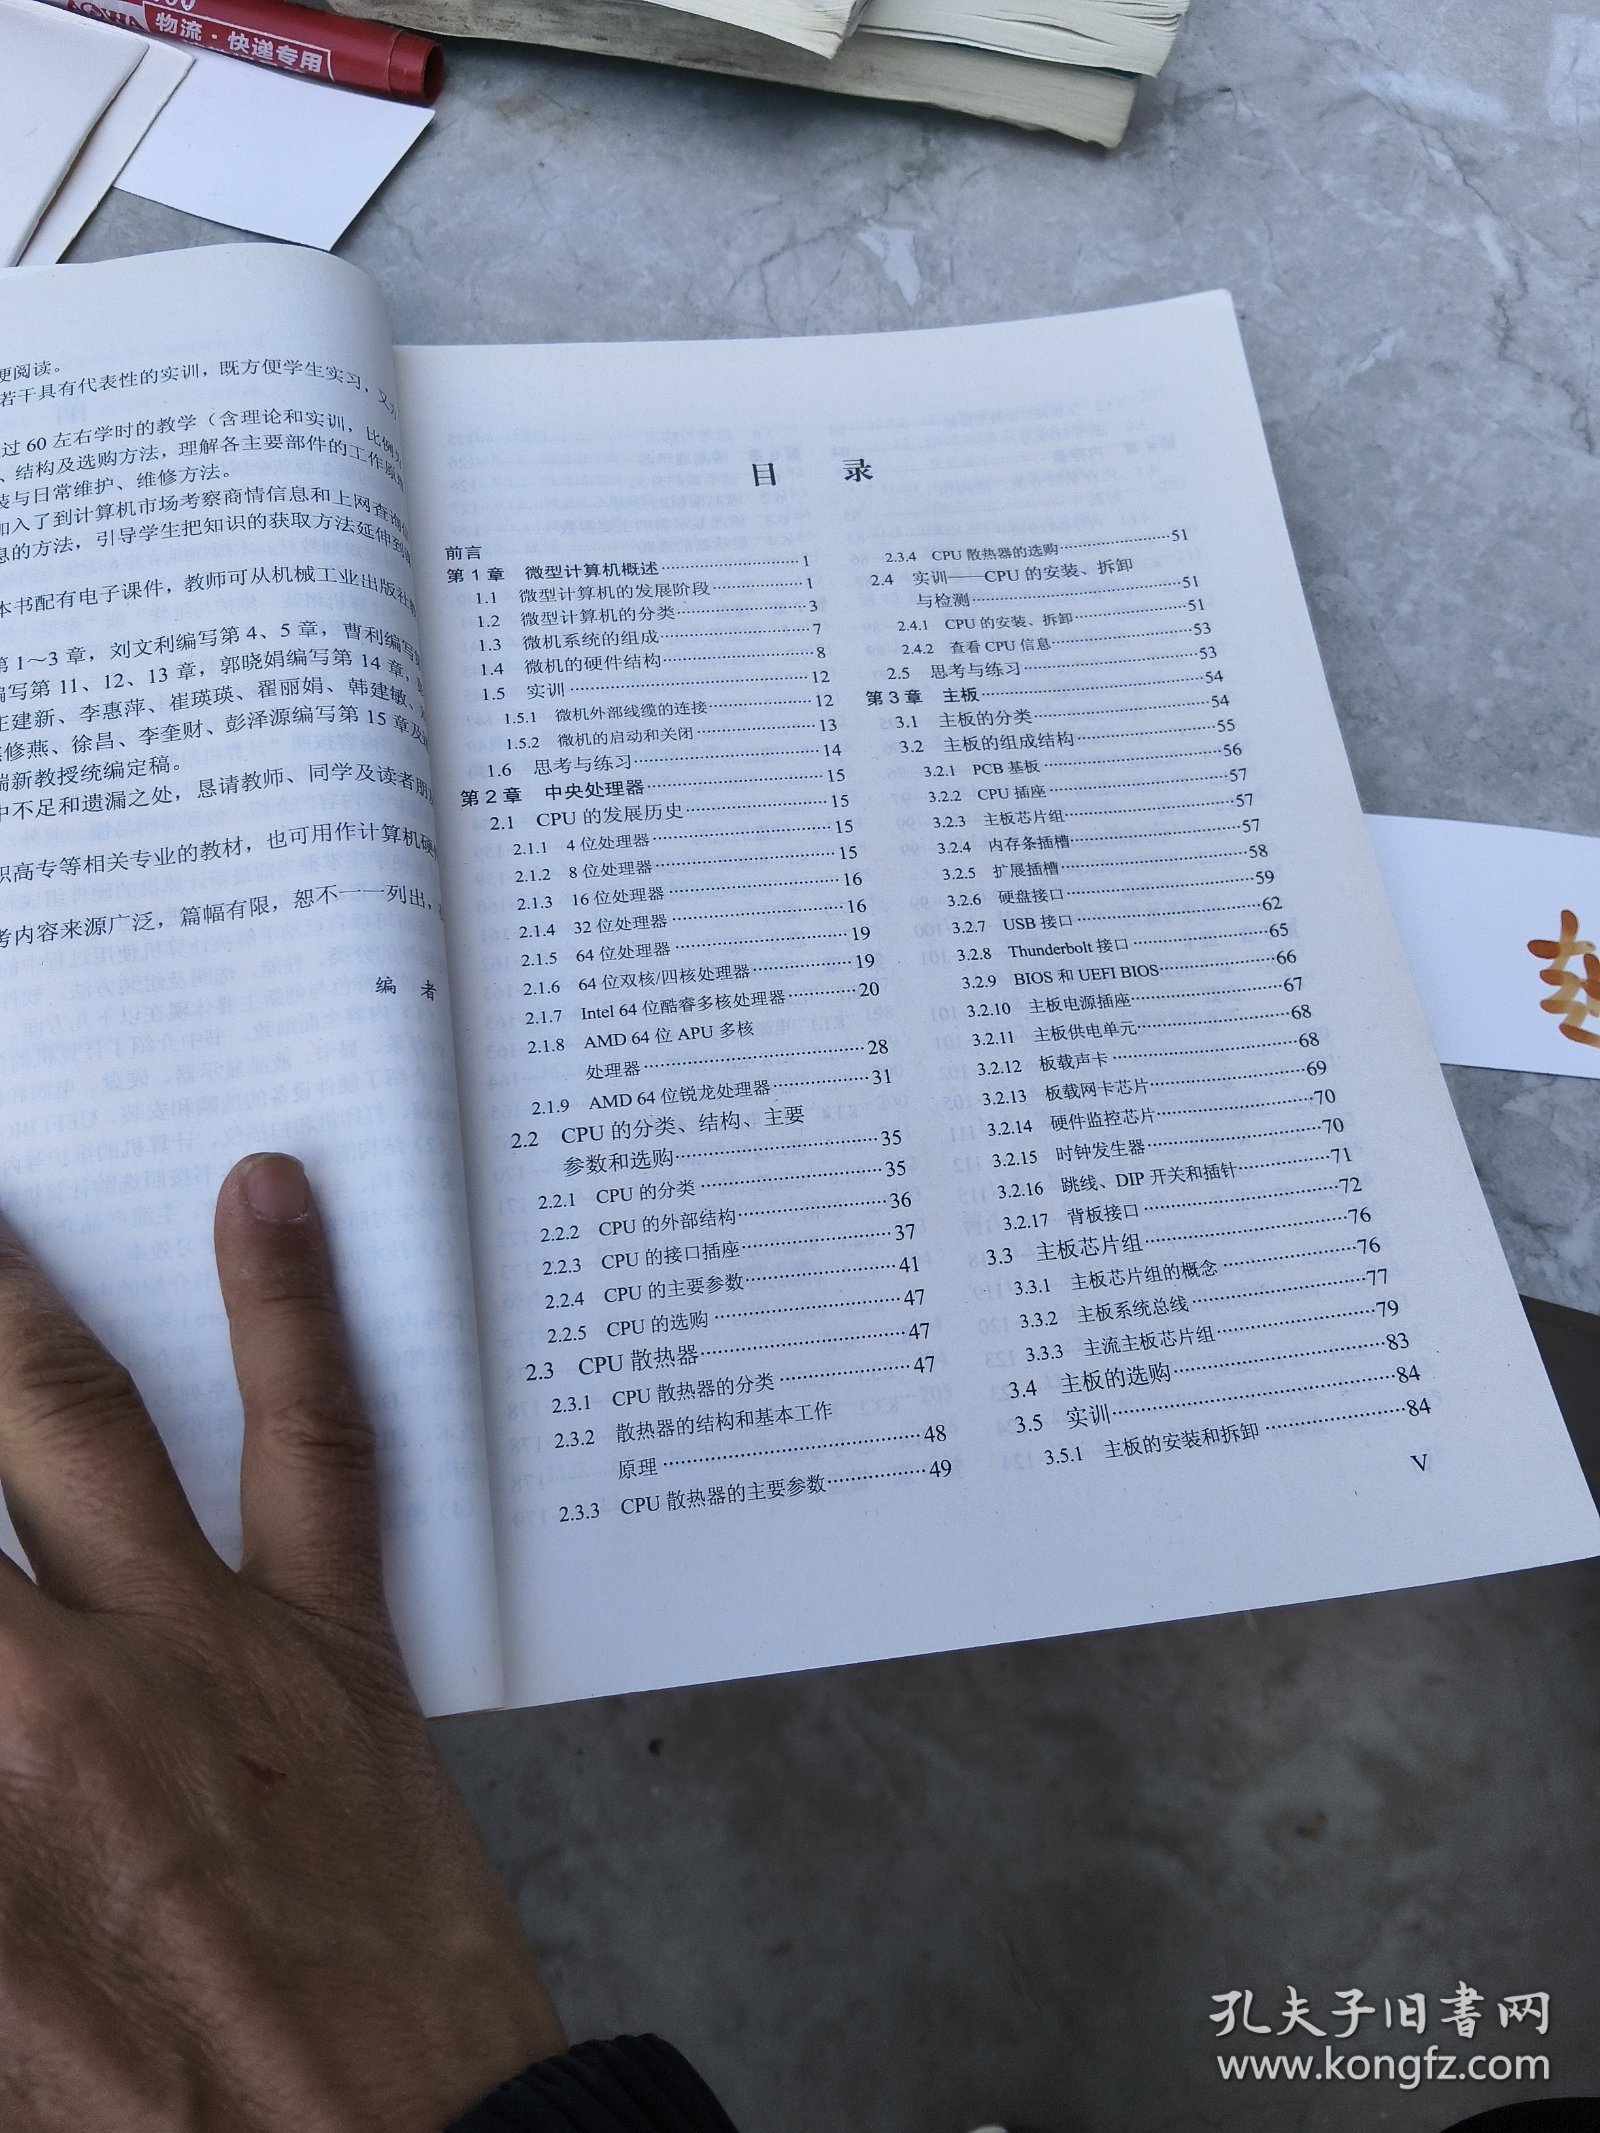 AOWA
物流·快递专用
便阅读。
若干具有代表性的实训，既方便学生实习，又
过 60 左右学时的教学（含理论和实训，比例
、结构及选购方法，理解各主要部件的工作原
装与日常维护、维修方法。
加入了到计算机市场考察商情信息和上网查询
息的方法，引导学生把知识的获取方法延伸到
本书配有电子课件，教师可从机械工业出版社
第 1～3 章，刘文利编写第 4、5 章，曹利编写
编写第 11、12、13 章，郭晓娟编写第 14 章，
庄建新、李惠萍、崔瑛瑛、翟丽娟、韩建敏、
修燕、徐昌、李奎财、彭泽源编写第 15 章及
瑞新教授统编定稿。
中不足和遗漏之处，恳请教师、同学及读者朋
职高专等相关专业的教材，也可用作计算机硬
考内容来源广泛，篇幅有限，恕不一一列出，
编 者
目 录
前言
第 1 章 微型计算机概述 1
1.1 微型计算机的发展阶段 1
1.2 微型计算机的分类 3
1.3 微机系统的组成 7
1.4 微机的硬件结构 8
1.5 实训 12
1.5.1 微机外部线缆的连接 12
1.5.2 微机的启动和关闭 13
1.6 思考与练习 14
第 2 章 中央处理器 15
2.1 CPU 的发展历史 15
2.1.1 4 位处理器 15
2.1.2 8 位处理器 15
2.1.3 16 位处理器 16
2.1.4 32 位处理器 16
2.1.5 64 位处理器 19
2.1.6 64 位双核/四核处理器 19
2.1.7 Intel 64 位酷睿多核处理器 20
2.1.8 AMD 64 位 APU 多核
处理器 28
2.1.9 AMD 64 位锐龙处理器 31
2.2 CPU 的分类、结构、主要
参数和选购 35
2.2.1 CPU 的分类 35
2.2.2 CPU 的外部结构 36
2.2.3 CPU 的接口插座 37
2.2.4 CPU 的主要参数 41
2.2.5 CPU 的选购 47
2.3 CPU 散热器 47
2.3.1 CPU 散热器的分类 47
2.3.2 散热器的结构和基本工作
原理 48
2.3.3 CPU 散热器的主要参数 49
2.3.4 CPU 散热器的选购 51
2.4 实训——CPU 的安装、拆卸
与检测 51
2.4.1 CPU 的安装、拆卸 51
2.4.2 查看 CPU 信息 53
2.5 思考与练习 53
第 3 章 主板 54
3.1 主板的分类 54
3.2 主板的组成结构 55
3.2.1 PCB 基板 56
3.2.2 CPU 插座 57
3.2.3 主板芯片组 57
3.2.4 内存条插槽 57
3.2.5 扩展插槽 58
3.2.6 硬盘接口 59
3.2.7 USB 接口 62
3.2.8 Thunderbolt 接口 65
3.2.9 BIOS 和 UEFI BIOS 66
3.2.10 主板电源插座 67
3.2.11 主板供电单元 68
3.2.12 板载声卡 68
3.2.13 板载网卡芯片 69
3.2.14 硬件监控芯片 70
3.2.15 时钟发生器 70
3.2.16 跳线、DIP 开关和插针 71
3.2.17 背板接口 72
3.3 主板芯片组 76
3.3.1 主板芯片组的概念 76
3.3.2 主板系统总线 77
3.3.3 主流主板芯片组 79
3.4 主板的选购 83
3.5 实训 84
3.5.1 主板的安装和拆卸 84
V
孔夫子旧书网
www.kongfz.com